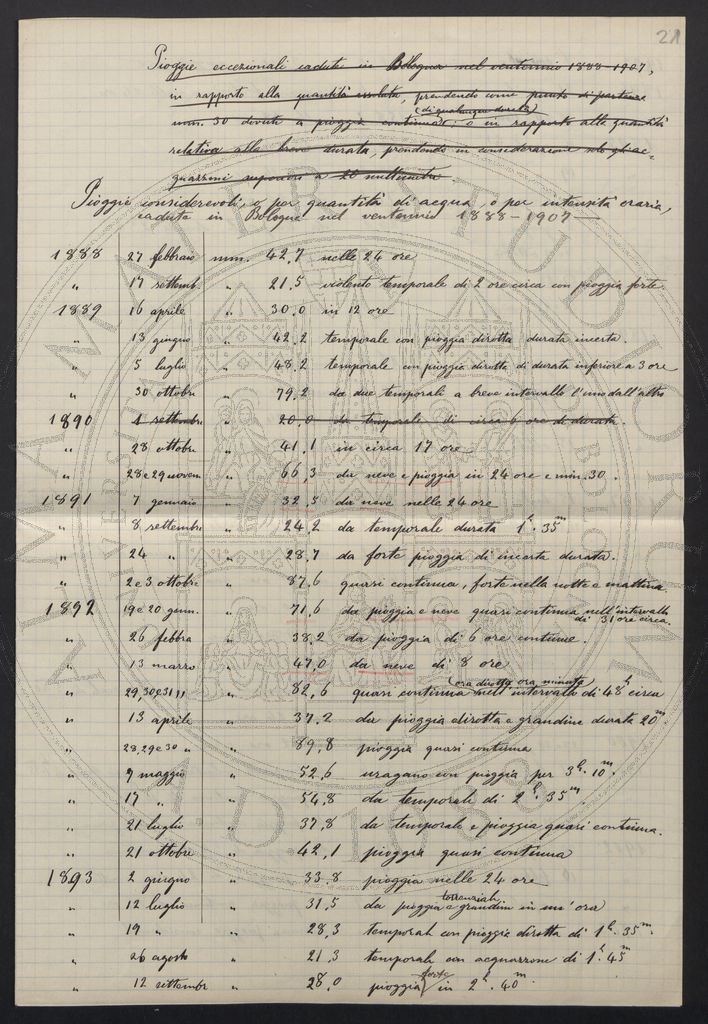 21
Pioggie eccezionali cadute in Bologna nel ventennio 1888-1907,
in rapporto alla quantità assoluta, prendendo come punto di partenza
(di qualunque durata)
mm. 30 dovuti a pioggia continua, o in rapporto alla quantità
relativa alla breve durata, prendendo in considerazione solo gli ac-
quazzoni superiori a 20 millimetri
Pioggie considerevoli, o per quantità di acqua, o per intensità oraria,
cadute in Bologna nel ventennio 1888-1907
1888 27 febbraio mm. 42,7 nelle 24 ore
" 17 settemb. " 21,5 violento temporale di 2 ore circa con pioggia forte.
1889 16 aprile " 30,0 in 12 ore
" 13 giugno " 42,2 temporale con pioggia dirotta durata incerta.
" 5 luglio " 48,2 temporale con pioggia dirotta di durata inferiore a 3 ore
" 30 ottobre " 79,2 da due temporali a breve intervallo l'uno dall'altro
1890 4 settembre " 20,0 da temporale di circa 6 ore di durata.
" 28 ottobre " 41,1 in circa 17 ore
" 28 e 29 novem " 66,3 da neve e pioggia in 24 ore e min. 30.
1891 7 gennaio " 32,5 da neve nelle 24 ore
" 8 settembre " 24,2 da temporale durata 1h. 35m
" 24 " " 28,7 da forte pioggia di incerta durata.
" 2 e 3 ottobre " 87,6 quasi continua, forte nella notte e mattina.
1892 19 e 20 genn. " 71,6 da pioggia e neve quasi continua nell'intervallo
di 31 ore circa.
" 26 febbra " 38,2 da pioggia di 6 ore continue.
" 13 marzo " 47,0 da neve di 8 ore
(ora dirotta ora minuta)
" 29,30 e 31 " " 82,6 quasi continua nell'intervallo di 48h circa
" 13 aprile " 37,2 da pioggia dirotta e grandine durata 20m.
" 28,29 e 30 " " 89,8 pioggia quasi continua
" 9 maggio " 52,6 uragano con pioggia per 3h. 10m.
" 17 " " 54,8 da temporali di 2h. 35m.
" 21 luglio " 37,8 da temporale e pioggia quasi continua.
" 21 ottobre " 42,1 pioggia quasi continua
1893 2 giugno " 33,8 pioggia nelle 24 ore
torrenziale
" 12 luglio " 31,5 da pioggia e grandine in un'ora
" 19 " " 28,3 temporale con pioggia dirotta di 1h. 35m.
" 26 agosto " 21,3 temporale con acquazzone di 1h. 45m
forte
" 12 settembre " 28,0 pioggia in 2h. 40m.
ALMA MATER STUDIORUM
A.D. 1088